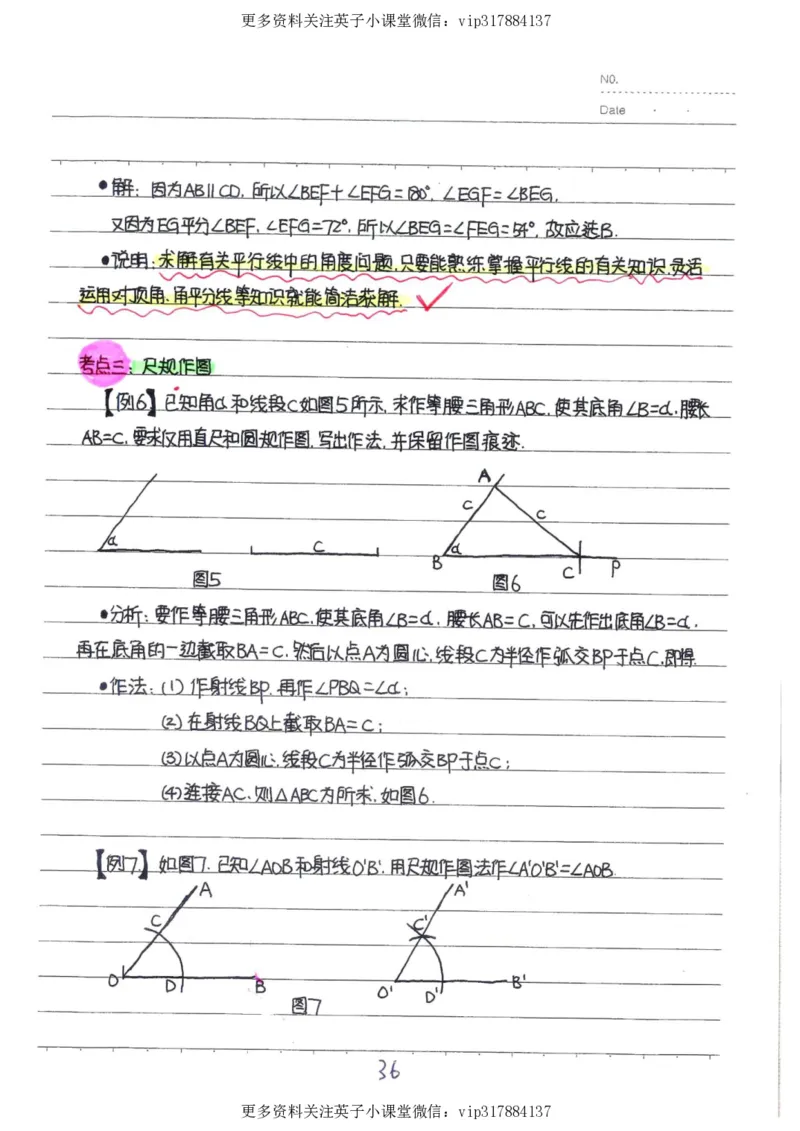 更多资料关注英子小课堂微信：vip317884137
NO.
Date
•解：因为AB∥CD，所以∠BEF+∠EFG=180°，∠EGF=∠BEG，
又因为EG平分∠BEF，∠EFG=72°，所以∠BEG=∠FEG=54°，故应选B.
•说明：求解有关平行线中的角度问题，只要能熟练掌握平行线的有关知识，灵活
运用对顶角、角平分线等知识就能简洁获解.
考点三：尺规作图
【例6】已知角α和线段c如图5所示，求作等腰三角形ABC，使其底角∠B=α，腰长
AB=c，要求仅用直尺和圆规作图，写出作法，并保留作图痕迹.
α
c
图5
A
c
c
B
α
C
P
图6
•分析：要作等腰三角形ABC，使其底角∠B=α，腰长AB=c，可以先作出底角∠B=α，
再在底角的一边截取BA=c，然后以点A为圆心，线段c为半径作弧交BP于点C，即得.
•作法：(1)作射线BP，再作∠PBQ=∠α；
(2)在射线BQ上截取BA=c；
(3)以点A为圆心，线段c为半径作弧交BP于点C；
(4)连接AC，则△ABC为所求，如图6.
【例7】如图7，已知∠AOB和射线O'B'，用尺规作图法作∠A'O'B'=∠AOB.
A
C
O
D
B
A'
C'
O'
D'
B'
图7
36
更多资料关注英子小课堂微信：vip317884137